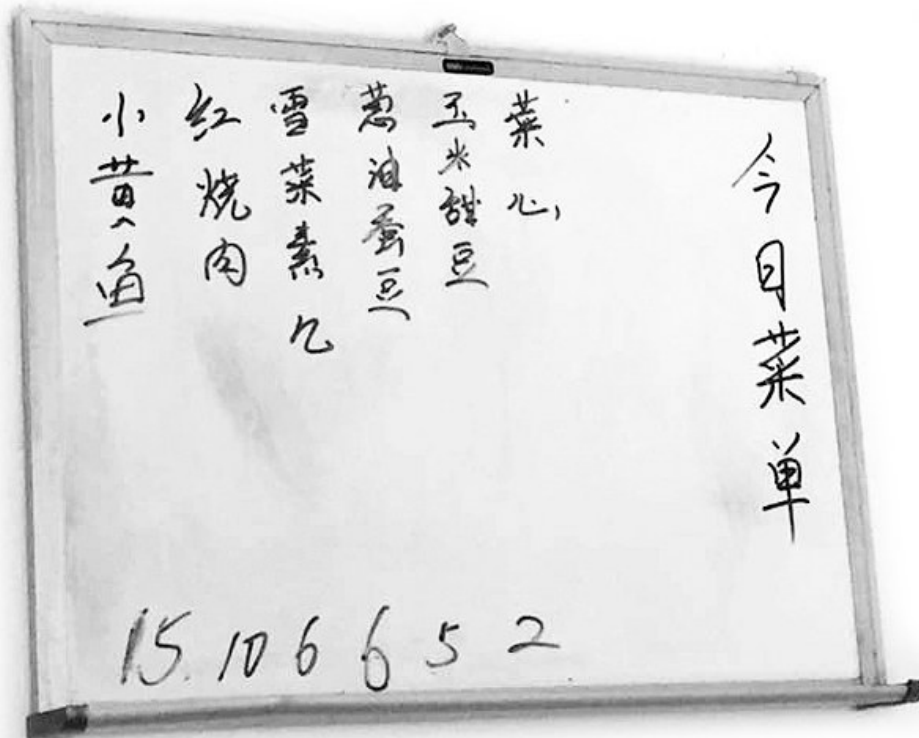 今日菜单
菜心
玉米甜豆
葱油蚕豆
雪菜素几
红烧肉
小黄鱼
2
5
6
6
10
15